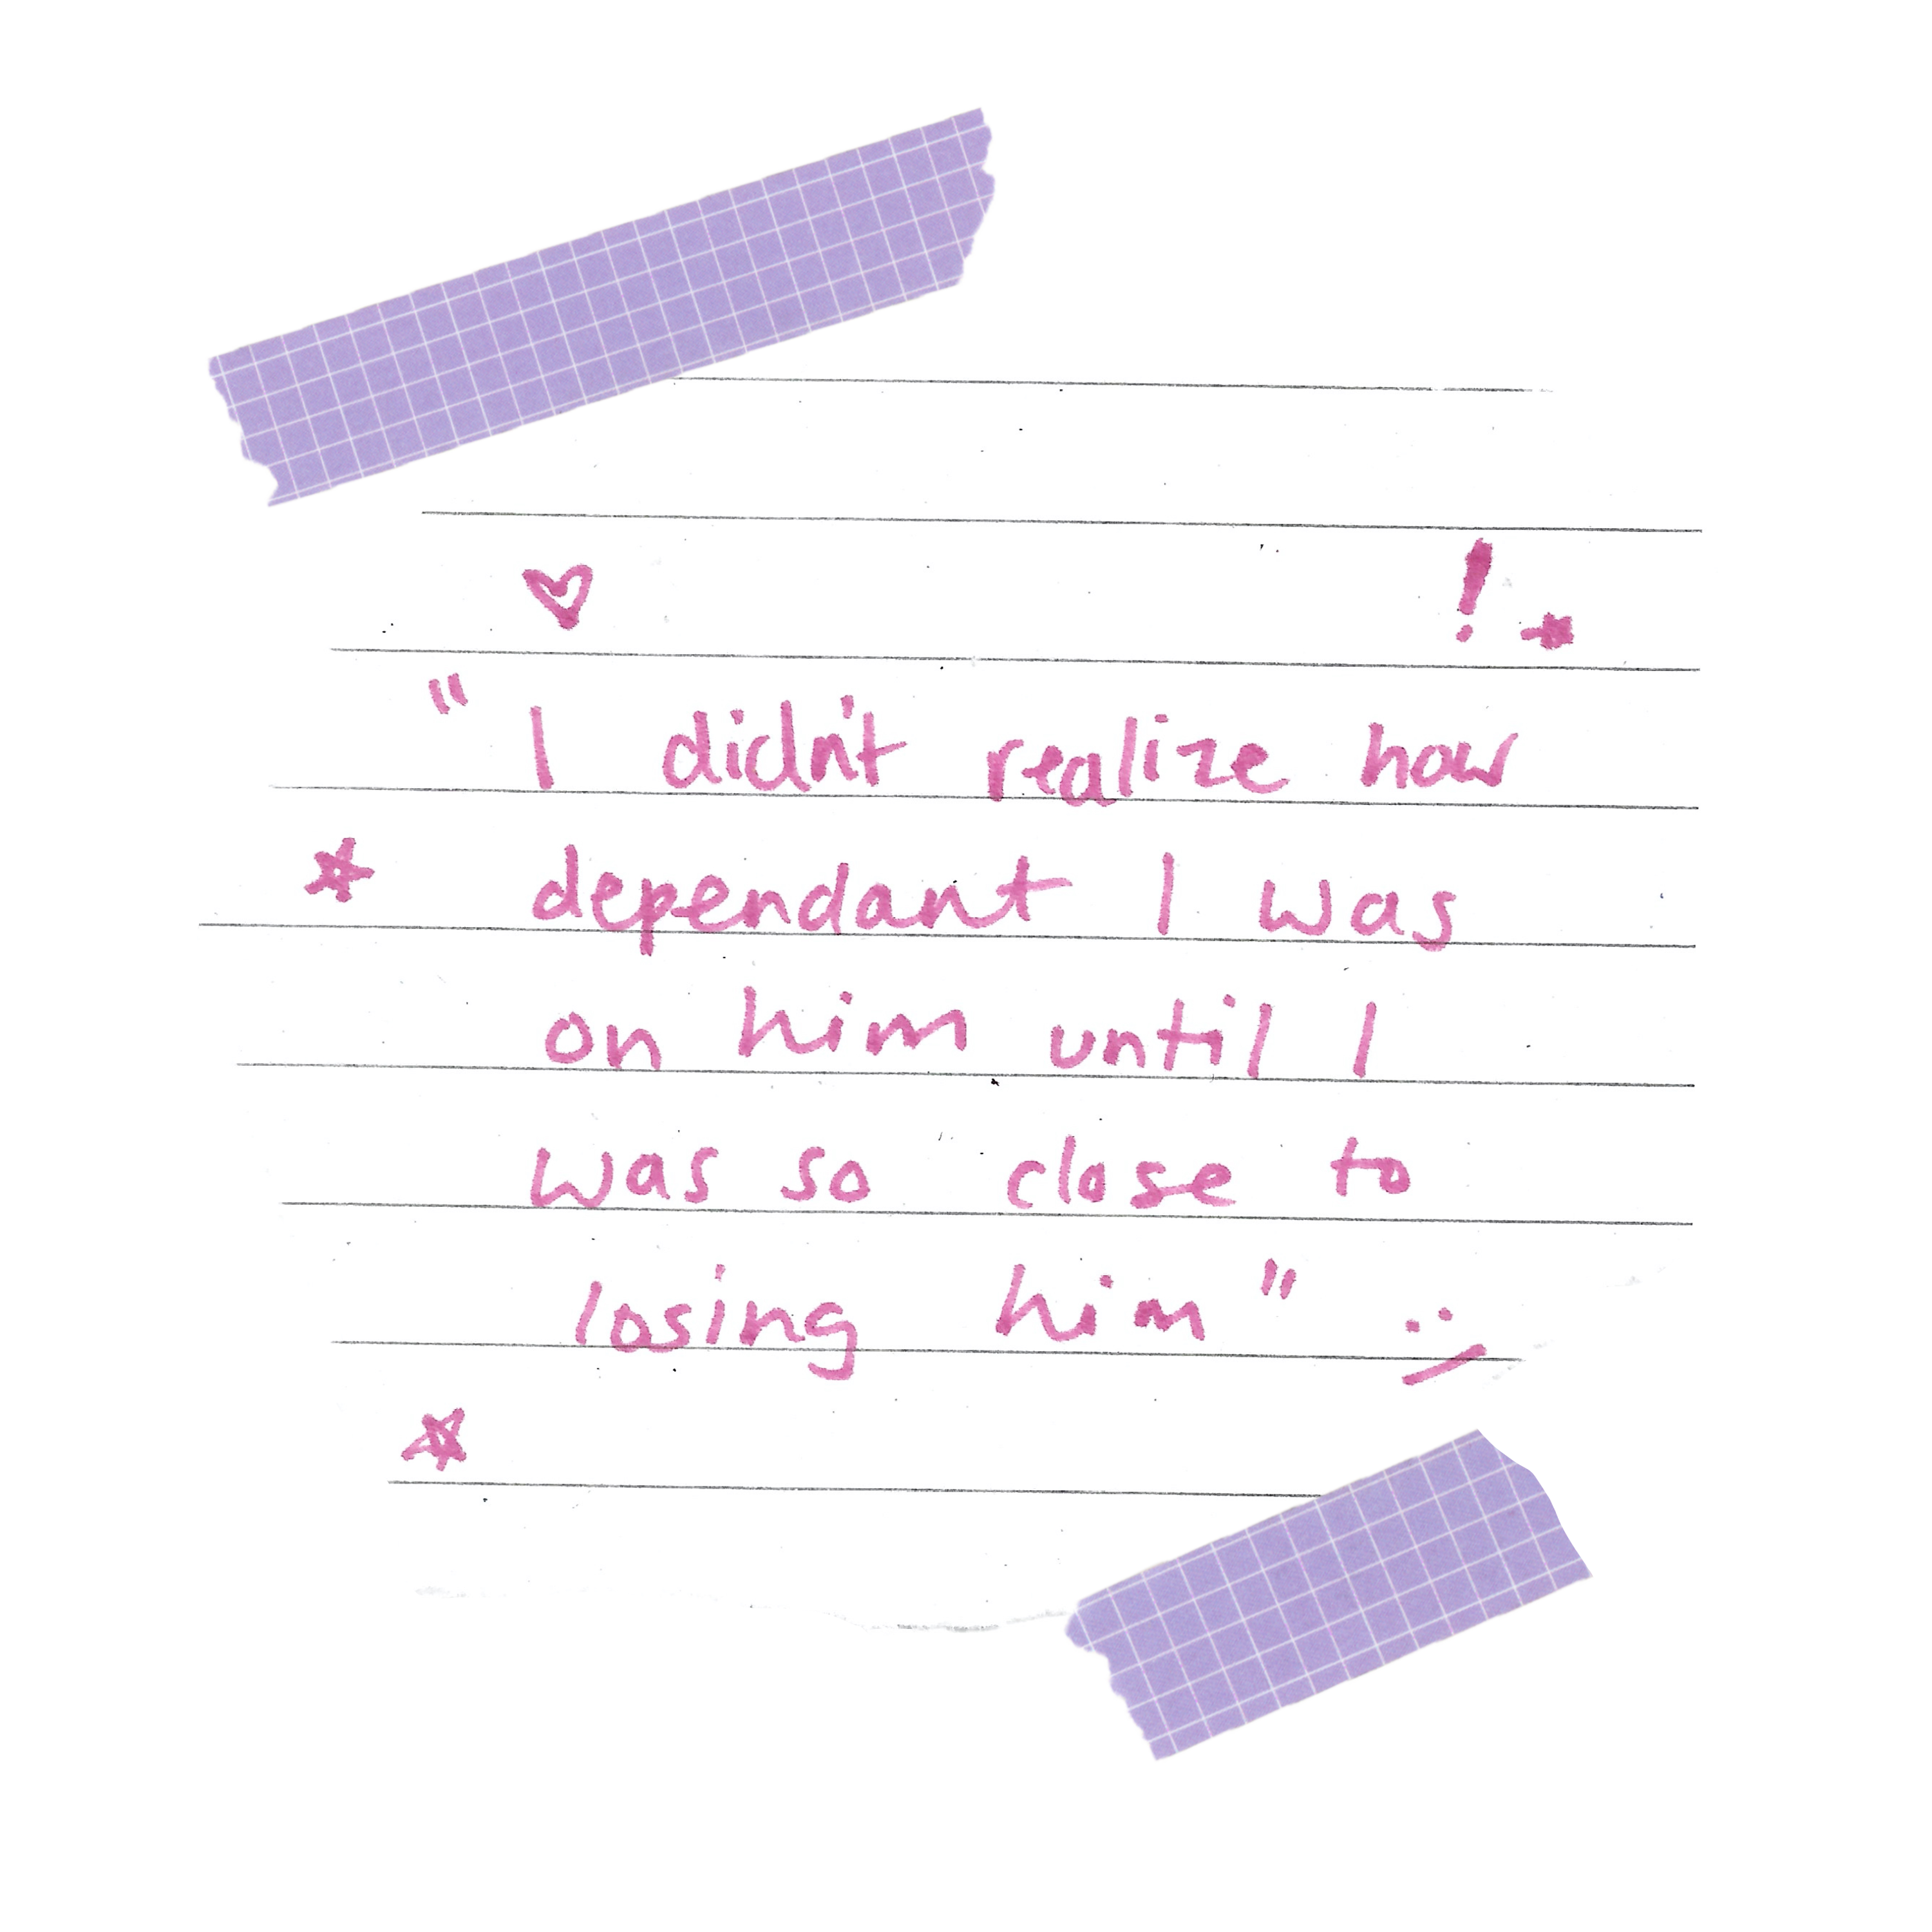 !
"I didn't realize how
dependant I was
on him until I
was so close to
losing him" :/